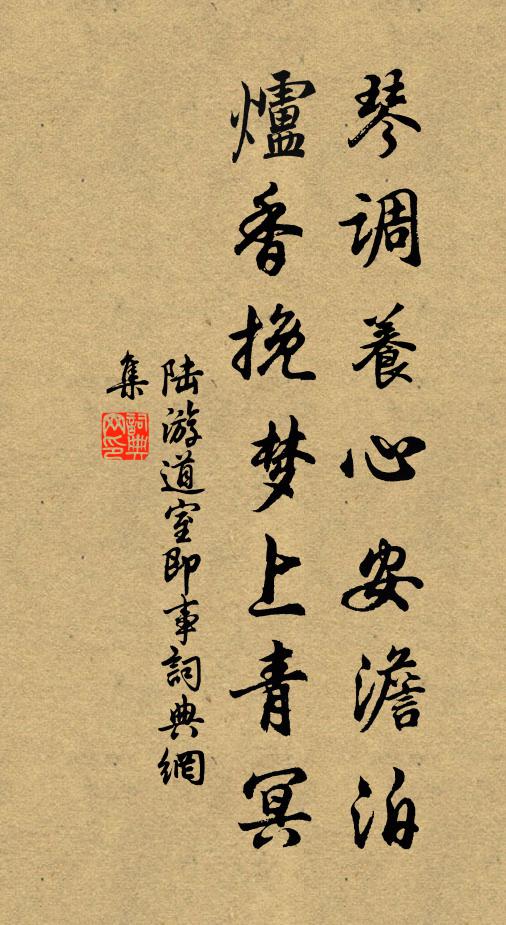 琴调養心安澹泊
爐香挽梦上青冥
陆游道室即事詞典網
集
詞典網印